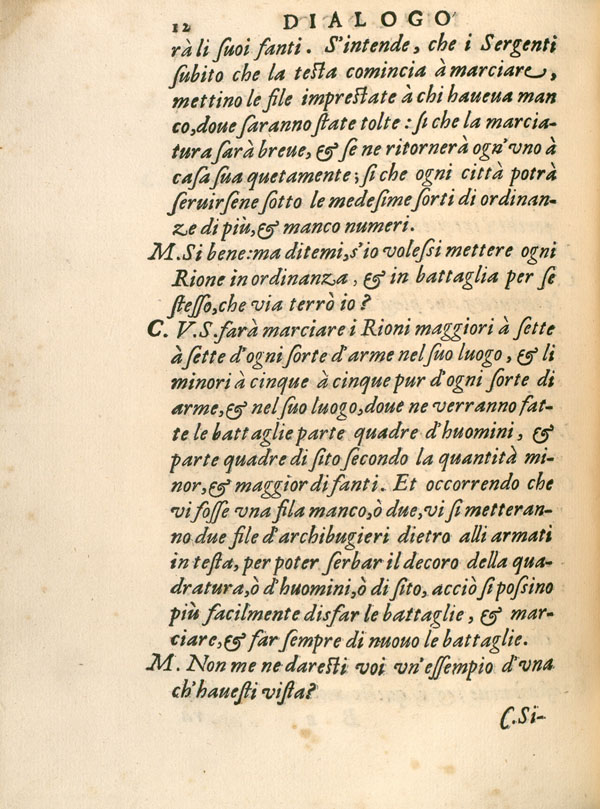 12 DIALOGO
rà li suoi fanti. S'intende, che i Sergenti
ſubito che la teſta comincia à marciare,
mettino le file impreſtate à chi haueua man
co, doue ſaranno ſtate tolte: ſi che la marcia-
tura ſarà breue, & ſe ne ritornerà ogn'vno à
caſa ſua quetamente; ſi che ogni città potrà
ſeruirſene ſotto le medeſime ſorti di ordinan-
ze di più, & manco numeri.
M. Si bene: ma ditemi, s'io voleſſi mettere ogni
Rione in ordinanza, & in battaglia per ſe
ſteſſo, che via terrò io?
C. V. S. farà marciare i Rioni maggiori à ſette
à ſette d'ogni ſorte d'arme nel ſuo luogo, & li
minori à cinque à cinque pur d'ogni ſorte di
arme, & nel ſuo luogo, doue ne verranno fat-
te le battaglie parte quadre d'huomini, &
parte quadre di ſito ſecondo la quantità mi-
nor, & maggior di fanti. Et occorrendo che
vi foſſe vna fila manco, ò due, vi ſi metteran-
no due file d'archibugieri dietro alli armati
in teſta, per poter ſerbar il decoro della qua-
dratura, ò d'huomini, ò di ſito, acciò ſi poſſino
più facilmente disfar le battaglie, & mar-
ciare, & far ſempre di nuouo le battaglie.
M. Non me ne dareſti voi vn'eſſempio d'vna
ch'haueſti viſta?
C. Si-